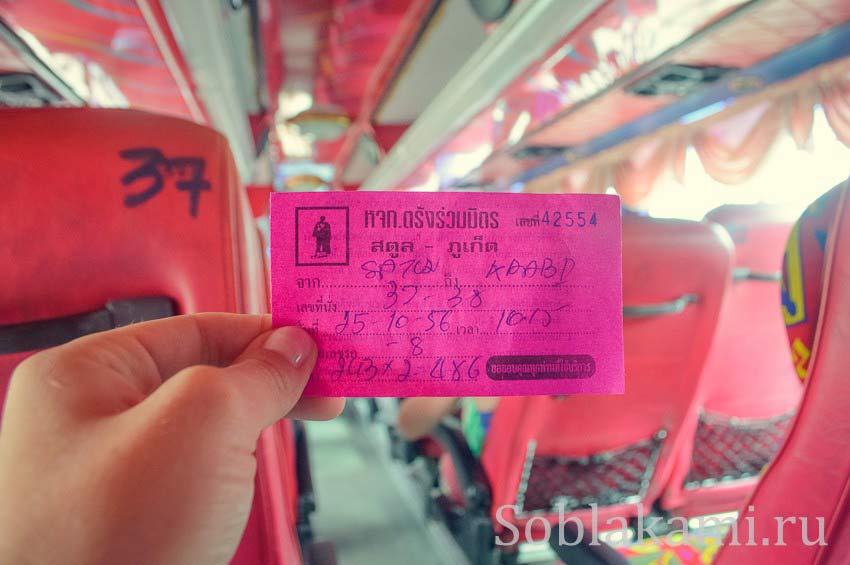 37
หจก.ตรังร่วมมิตร เลขที่ 42554
สตูล - ภูเก็ต
จาก สตูล ถึง KRABI
เลขที่นั่ง 37-38
วันที่ 25-10-56 เวลา 10-15
-8
243 x 2 = 486 ขอขอบคุณทุกท่านที่ใช้บริการ
Soblakami.ru